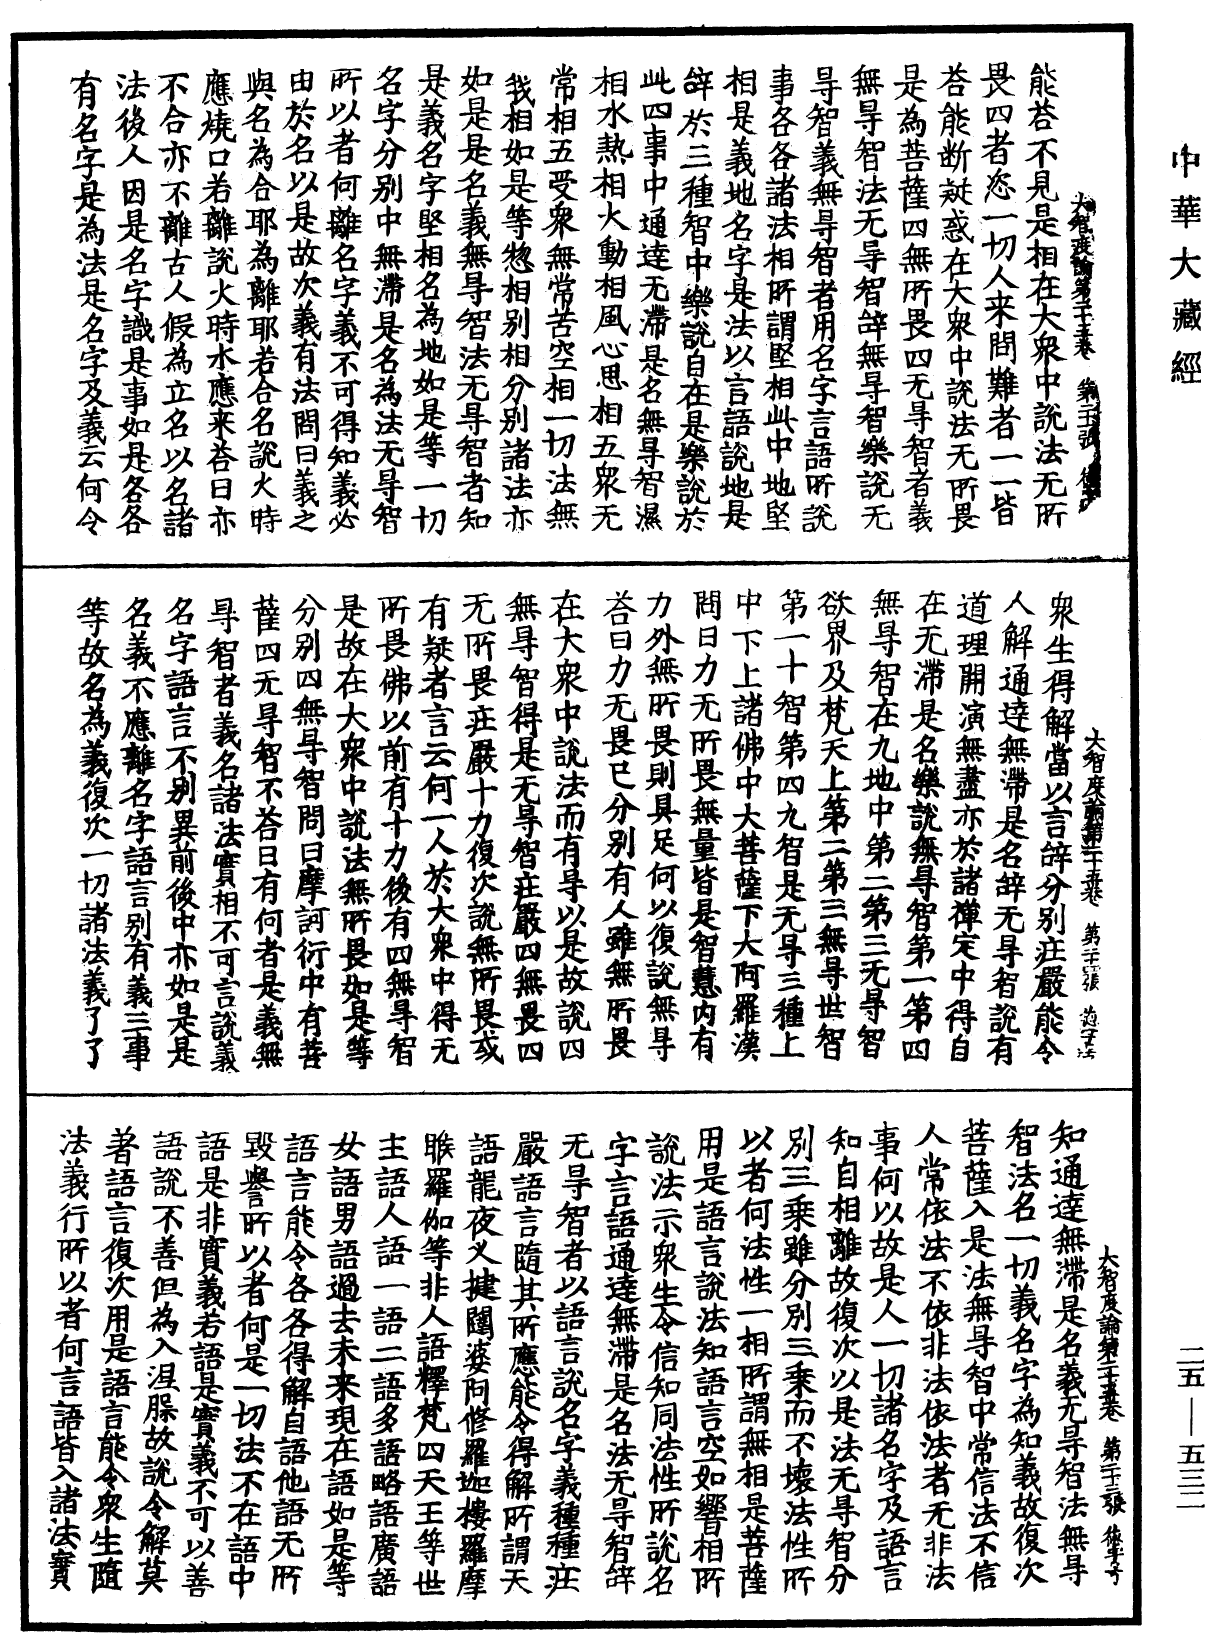 中華大藏經
大智度論第二十五卷
能荅不見是相在大衆中說法无所
畏四者恣一切人来問難者一一皆
荅能断疑惑在大衆中說法无所畏
是為菩薩四無所畏四无㝵智者義
無㝵智法无㝵智辝無㝵智樂說无
㝵智義無㝵智者用名字言語所說
事各各諸法相所謂堅相此中地堅
相是義地名字是法以言語說地是
辝於三種智中樂說自在是樂說於
此四事中通達无滯是名無㝵智濕
相水熱相火動相風心思相五衆无
常相五受衆無常苦空相一切法無
我相如是等惣相別相分別諸法亦
如是是名義無㝵智法无㝵智者知
是義名字堅相名為地如是等一切
名字分別中無滯是名為法无㝵智
所以者何離名字義不可得知義必
由於名以是故次義有法問曰義之
與名為合耶為離耶若合名說火時
應燒口若離說火時水應来荅曰亦
不合亦不離古人假為立名以名諸
法後人因是名字識是事如是各各
有名字是為法是名字及義云何令
大智度論第二十五卷
衆生得解當以言辝分別莊嚴能令
人解通達無滯是名辝无㝵智說有
道理開演無盡亦於諸禅定中得自
在无滯是名樂說無㝵智第一第四
無㝵智在九地中第二第三无㝵智
欲界及梵天上第二第三無㝵世智
第一十智第四九智是无㝵三種上
中下上諸佛中大菩薩下大阿羅漢
問曰力无所畏無量皆是智慧内有
力外無所畏則具足何以復說無㝵
荅曰力无畏已分別有人雖無所畏
在大衆中說法而有㝵以是故說四
無㝵智得是无㝵智莊嚴四無畏四
无所畏莊嚴十力復次說無所畏或
有疑者言云何一人於大衆中得无
所畏佛以前有十力後有四無㝵智
是故在大衆中說法無所畏如是等
分別四無㝵智問曰摩訶衍中有菩
薩四无㝵智不荅曰有何者是義無
㝵智者義名諸法實相不可言說義
名字語言不別異前後中亦如是是
名義不應離名字語言別有義三事
等故名為義復次一切諸法義了了
大智度論第二十五卷
知通達無滯是名義无㝵智法無㝵
智法名一切義名字為知義故復次
菩薩入是法無㝵智中常信法不信
人常依法不依非法依法者无非法
事何以故是人一切諸名字及語言
知自相離故復次以是法无㝵智分
別三乘雖分別三乘而不壞法性所
以者何法性一相所謂無相是菩薩
用是語言說法知語言空如響相所
說法示衆生令信知同法性所說名
字言語通達無滯是名法无㝵智辝
无㝵智者以語言說名字義種種莊
嚴語言隨其所應能令得解所謂天
語龍夜义揵闥婆阿修羅迦樓羅摩
睺羅伽等非人語釋梵四天王等世
主語人語一語二語多語略語廣語
女語男語過去未来現在語如是等
語言能令各各得解自語他語无所
毀譽所以者何是一切法不在語中
語是非實義若語是實義不可以善
語說不善但為入涅槃故說令解莫
著語言復次用是語言能令衆生隨
法義行所以者何言語皆入諸法實
二五—五三二